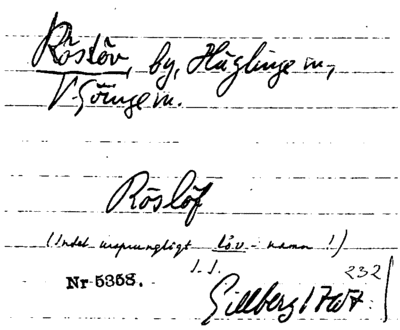 Röslöv, by, Häglinge sn,
V. Göinge hd.
Röslöf
(Intet ursprungligt löv-namn!)
J. J.
Nr 5358.
232
Gillberg 1767.